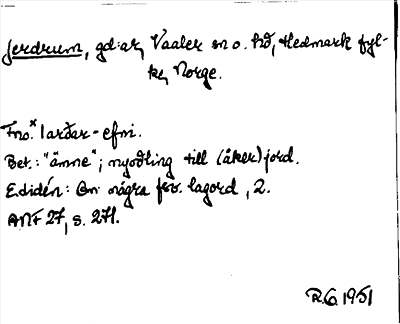 Jerdrum, gd:ar, Vaaler sn o. hd, Hedmark fyl-
ke, Norge.
Fno. *Iarðar-efni.
Bet.: "ämne"; nyodling till (åker)jord.
E. Lidén: Om några fno. lagord, 2.
ANF 27, s. 271.
R.G. 1951